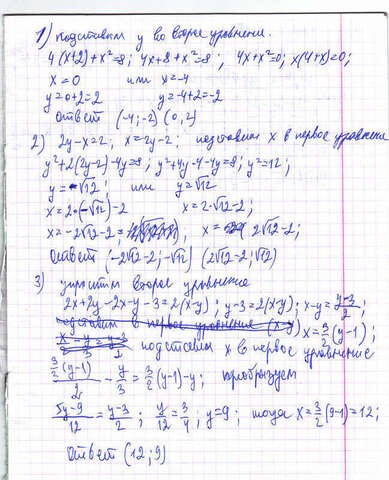 1) подставим y во второе уравнение.
4(x+2)+x²=8; 4x+8+x²=8; 4x+x²=0; x(4+x)=0;
x=0 или x=-4
y=0+2=2 y=-4+2=-2
Ответ (-4;-2) (0,2)
2) 2y-x=2, x=2y-2; подставим x в первое уравнение
y²+2(2y-2)-4y=8; y²+4y-4-4y=8; y²=12;
y=-√12; или y=√12
x=2·(-√12)-2 x=2·√12-2;
x=-2√12-2= x= 2√12-2;
Ответ (-2√12-2;-√12) (2√12-2;√12)
3) упростим второе уравнение
2x+2y-2x-y-3=2(x-y); y-3=2(x-y); x-y=(y-3)/2;
подставим в первое уравнение (x-y) x=3/2(y-1);
x-y=y-3 подставим x в первое уравнение
(3/2(y-1))/2 - y/3 = 3/2(y-1)-y; преобразуем
(5y-9)/12=(y-3)/2; y/12=3/4; y=9; тогда x=3/2(9-1)=12;
Ответ (12;9)